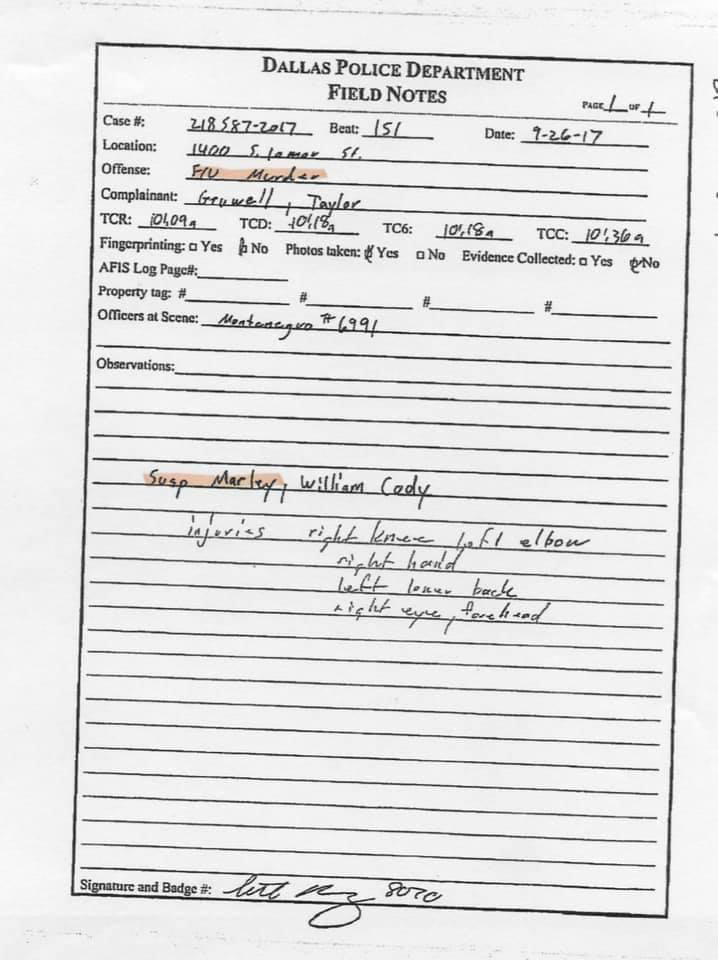 DALLAS POLICE DEPARTMENT
FIELD NOTES
PAGE 1 OF 1
Case #: 218587-2017 Beat: 151 Date: 9-26-17
Location: 1400 S. Lamar St.
Offense: F/U Murder
Complainant: Gruwell, Taylor
TCR: 10:09a TCD: 10:18a TC6: 10:18a TCC: 10:36a
Fingerprinting: □ Yes ☑ No Photos taken: ☑ Yes □ No Evidence Collected: □ Yes ☑ No
AFIS Log Page#:
Property tag: # # # #
Officers at Scene: Montenegro #6991
Observations:
Susp Marley, William Cody
injuries right knee left elbow
right hand
left lower back
right eye, forehead
Signature and Badge #: 8020